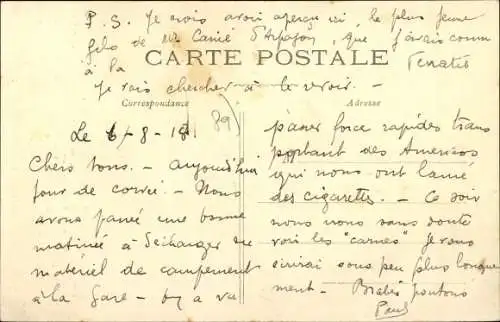 P.S. Je crois avoir aperçu ici, le plus jeune
fils de Mr Canié d'Arpajon, que j'avais connu
à la
Je vais chercher à le revoir. -
CARTE POSTALE
Correspondance
Adresse
Le 6-8-18
89)
Chers tous. - Aujourd'hui
jour de corvée. - Nous
avons passé une bonne
matinée à décharger du
matériel de campement
à la gare - On y a vu
passer force rapides trans
portant des Americos
qui nous ont lancé
des cigarettes. - Ce soir
nous nous sans doute
voir les "carnes" Je vous
écrirai sous peu plus longue
ment. - Bises partout
Paul